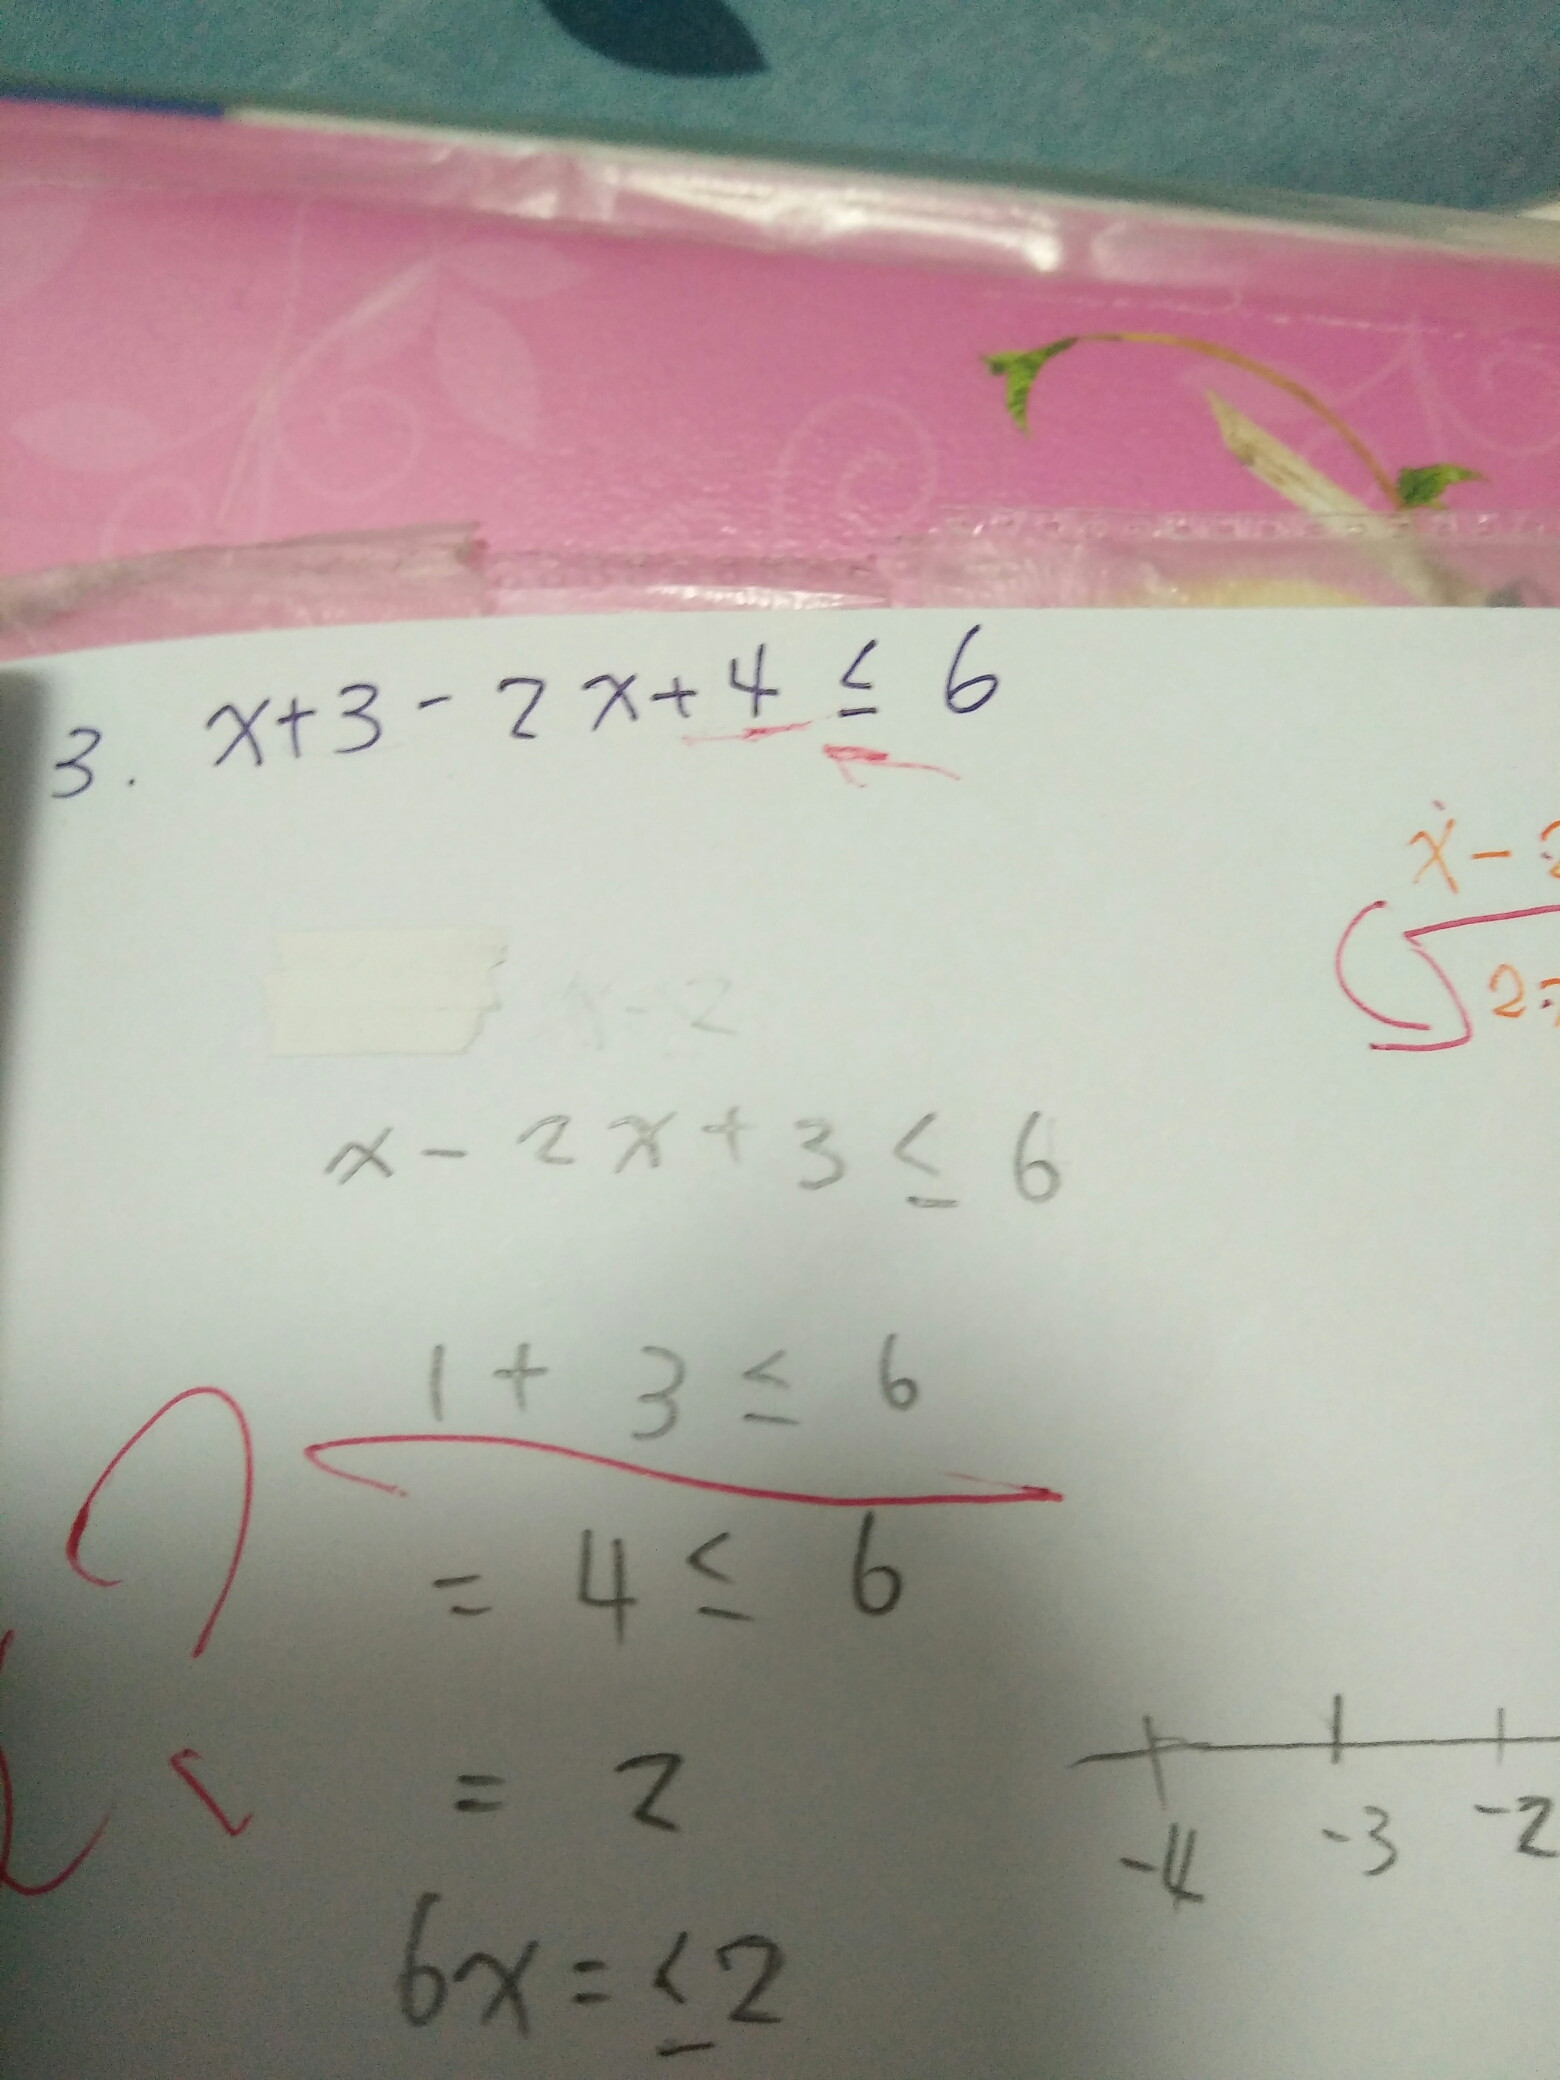 3. x+3-2x+4 ≤ 6
x-2
x-2x+3 ≤ 6
1+3 ≤ 6
= 4 ≤ 6
= 2
6x = ≤ 2
x-2
2
-4 -3 -2